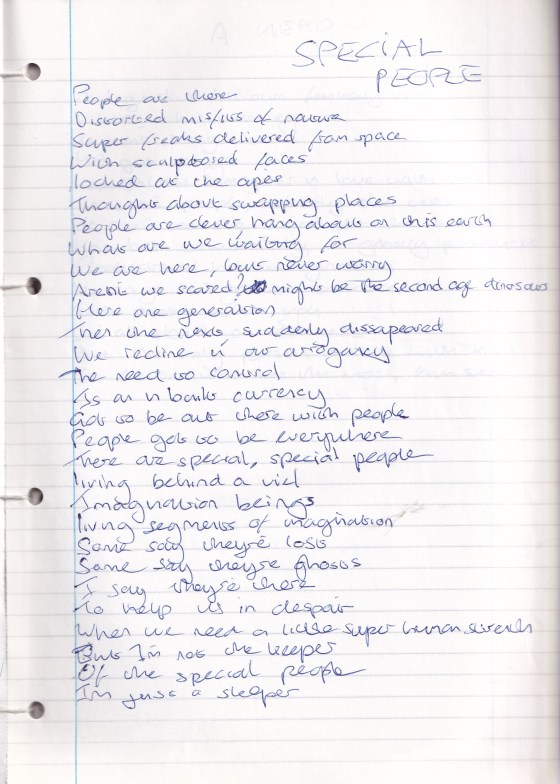 SPECIAL
PEOPLE
People are there
Distorted misfits of nature
Super freaks delivered from space
With sculptosed faces
locked at the apes
Thoughts about swapping places
People are clever, hang about on this earth
What are we waiting for
We are here, but never worry
Arent we scared? might be the second age dinosaurs
Here one generation
Then the next suddenly dissapeared
We recline in our arrogancy
The need to control
As an n bank currency
Got to be out there with people
People got to be everywhere
There are special, special people
living behind a viel
Imagination beings
living segments of imagination
Some say they're lost
Some say they're ghosts
I say they're there
To help us in despair
When we need a little super human strength
But I'm not the keeper
Of the special people
I'm just a sleeper